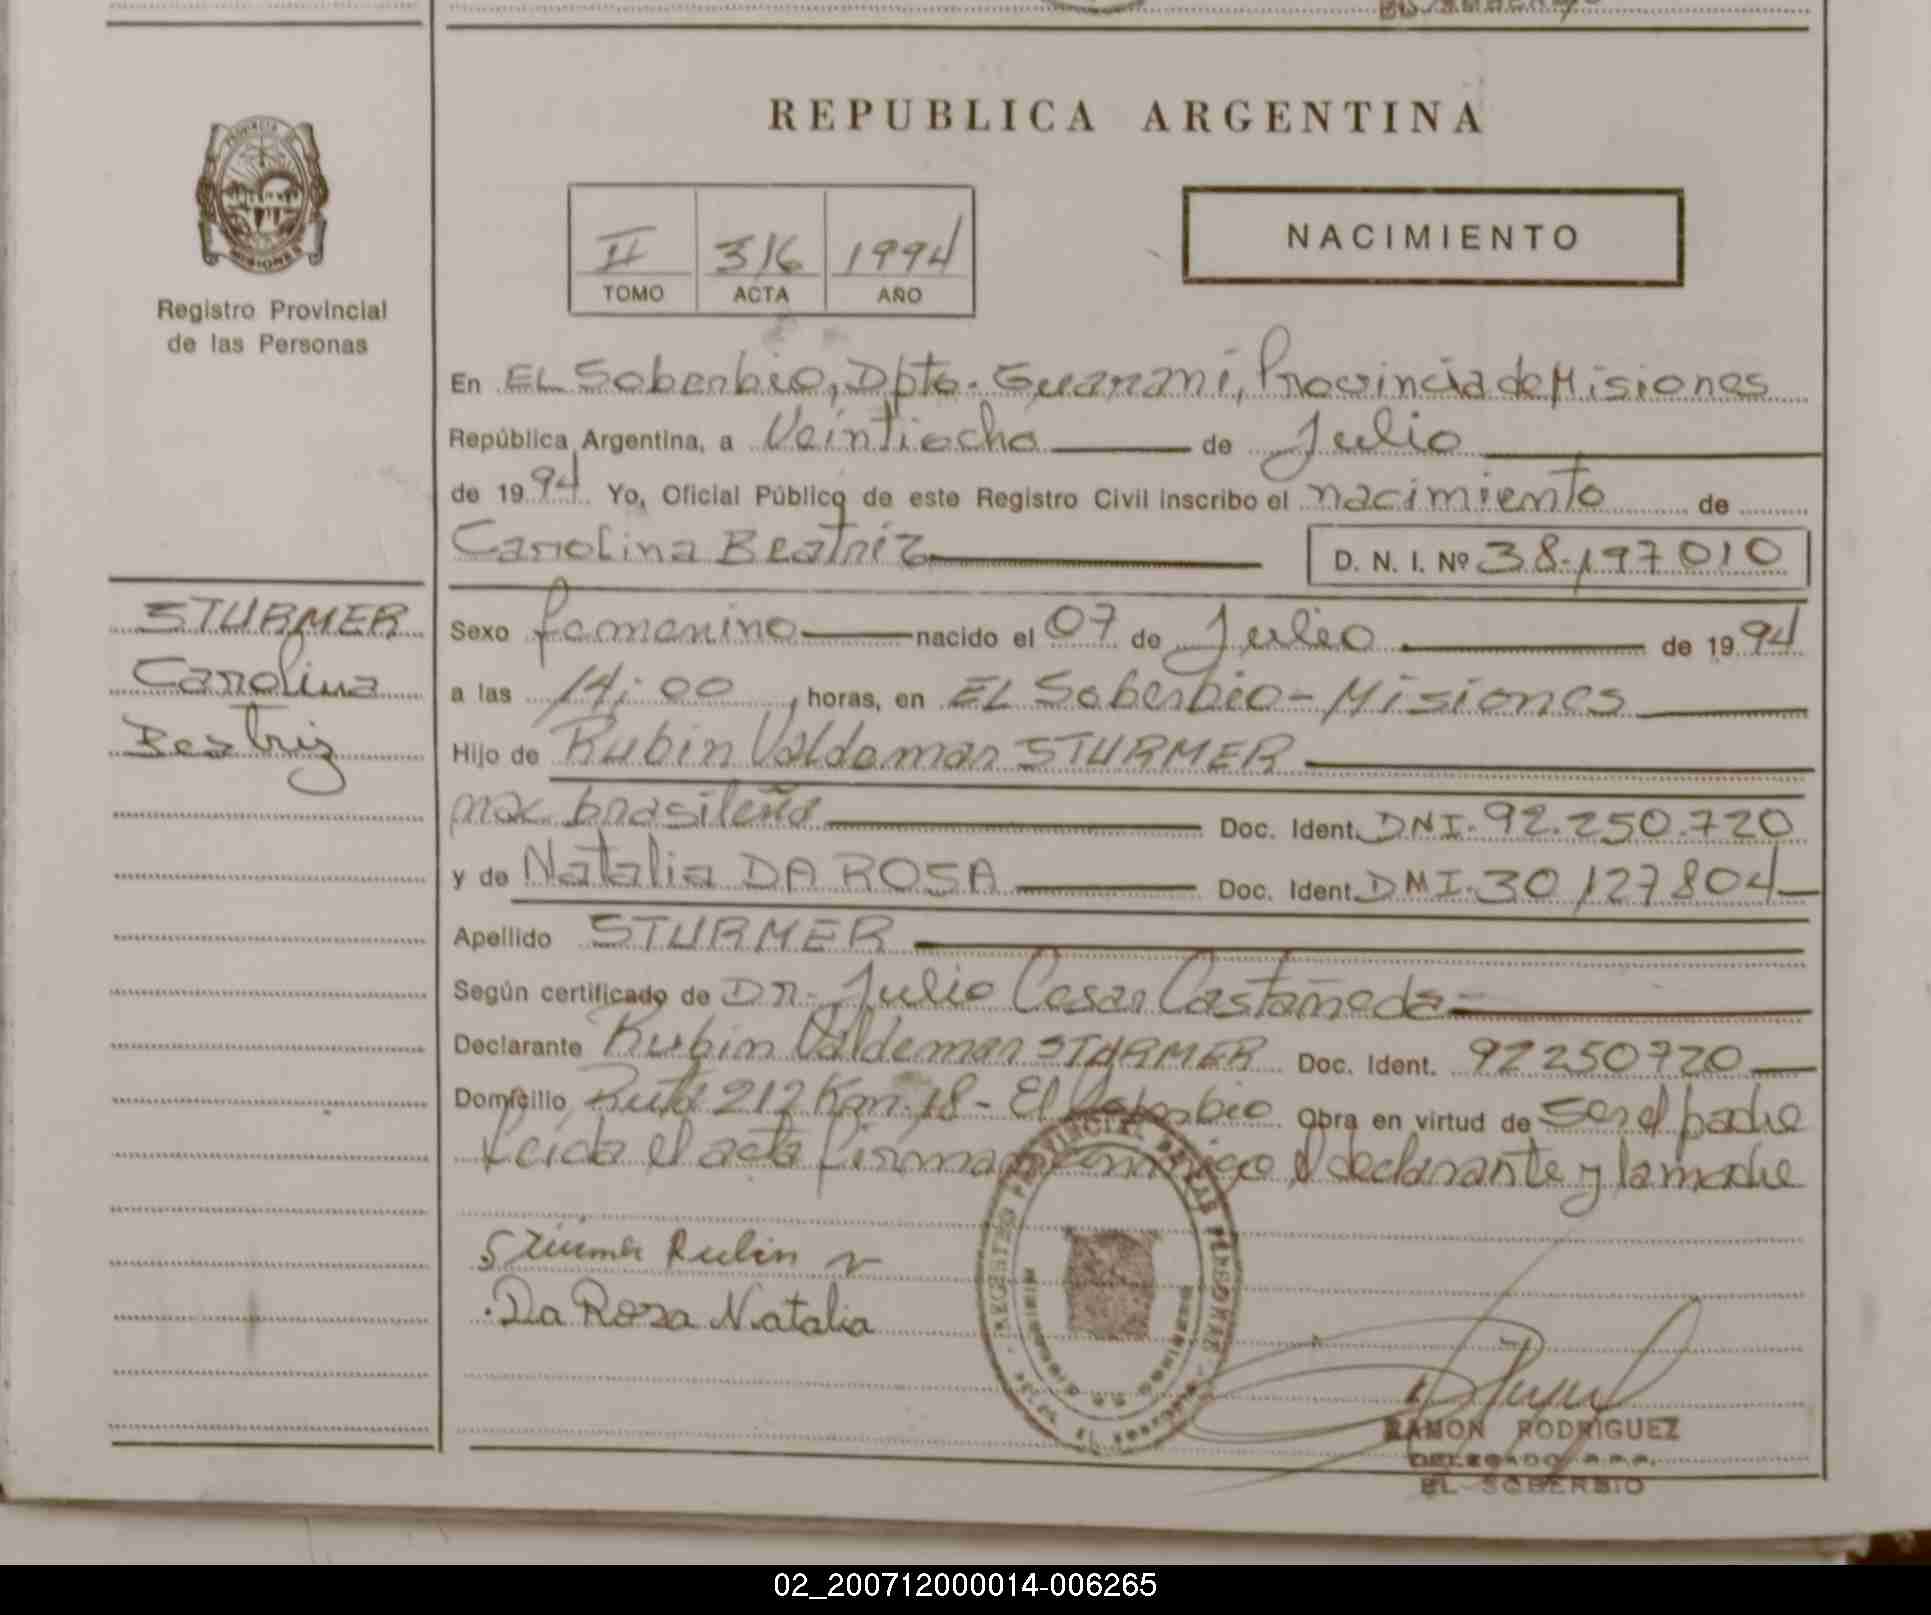 REPUBLICA ARGENTINA
NACIMIENTO
II 316 1994
TOMO ACTA AÑO
Registro Provincial
de las Personas
En EL Soberbio, Dpto. Guarani, Provincia de Misiones
República Argentina, a Veintiocho de Julio
de 1994 Yo, Oficial Público de este Registro Civil inscribo el nacimiento de
Carolina Beatriz D. N. I. Nº 38.197010
STURMER
Carolina
Beatriz
Sexo femenino nacido el 07 de Julio de 1994
a las 14:00 horas, en EL Soberbio - Misiones
Hijo de Rubin Valdemar STURMER
nac. brasileña Doc. Ident. DNI. 92.250.720
y de Natalia DA ROSA Doc. Ident. DMI. 30127804
Apellido STURMER
Según certificado de Dr. Julio Cesar Castañeda
Declarante Rubin Valdemar STURMER Doc. Ident. 92250720
Domicilio Ruta 212 Km. 18 - El Soberbio Obra en virtud de ser el padre
Leida el acta firman conmigo el declarante y la madre
REGISTRO PROVINCIAL DE LAS PERSONAS
Misiones
El Soberbio
Stürmer Rubin v
Da Rosa Natalia
RAMON RODRIGUEZ
DELEGADO R.P.P.
EL SOBERBIO
02_200712000014-006265